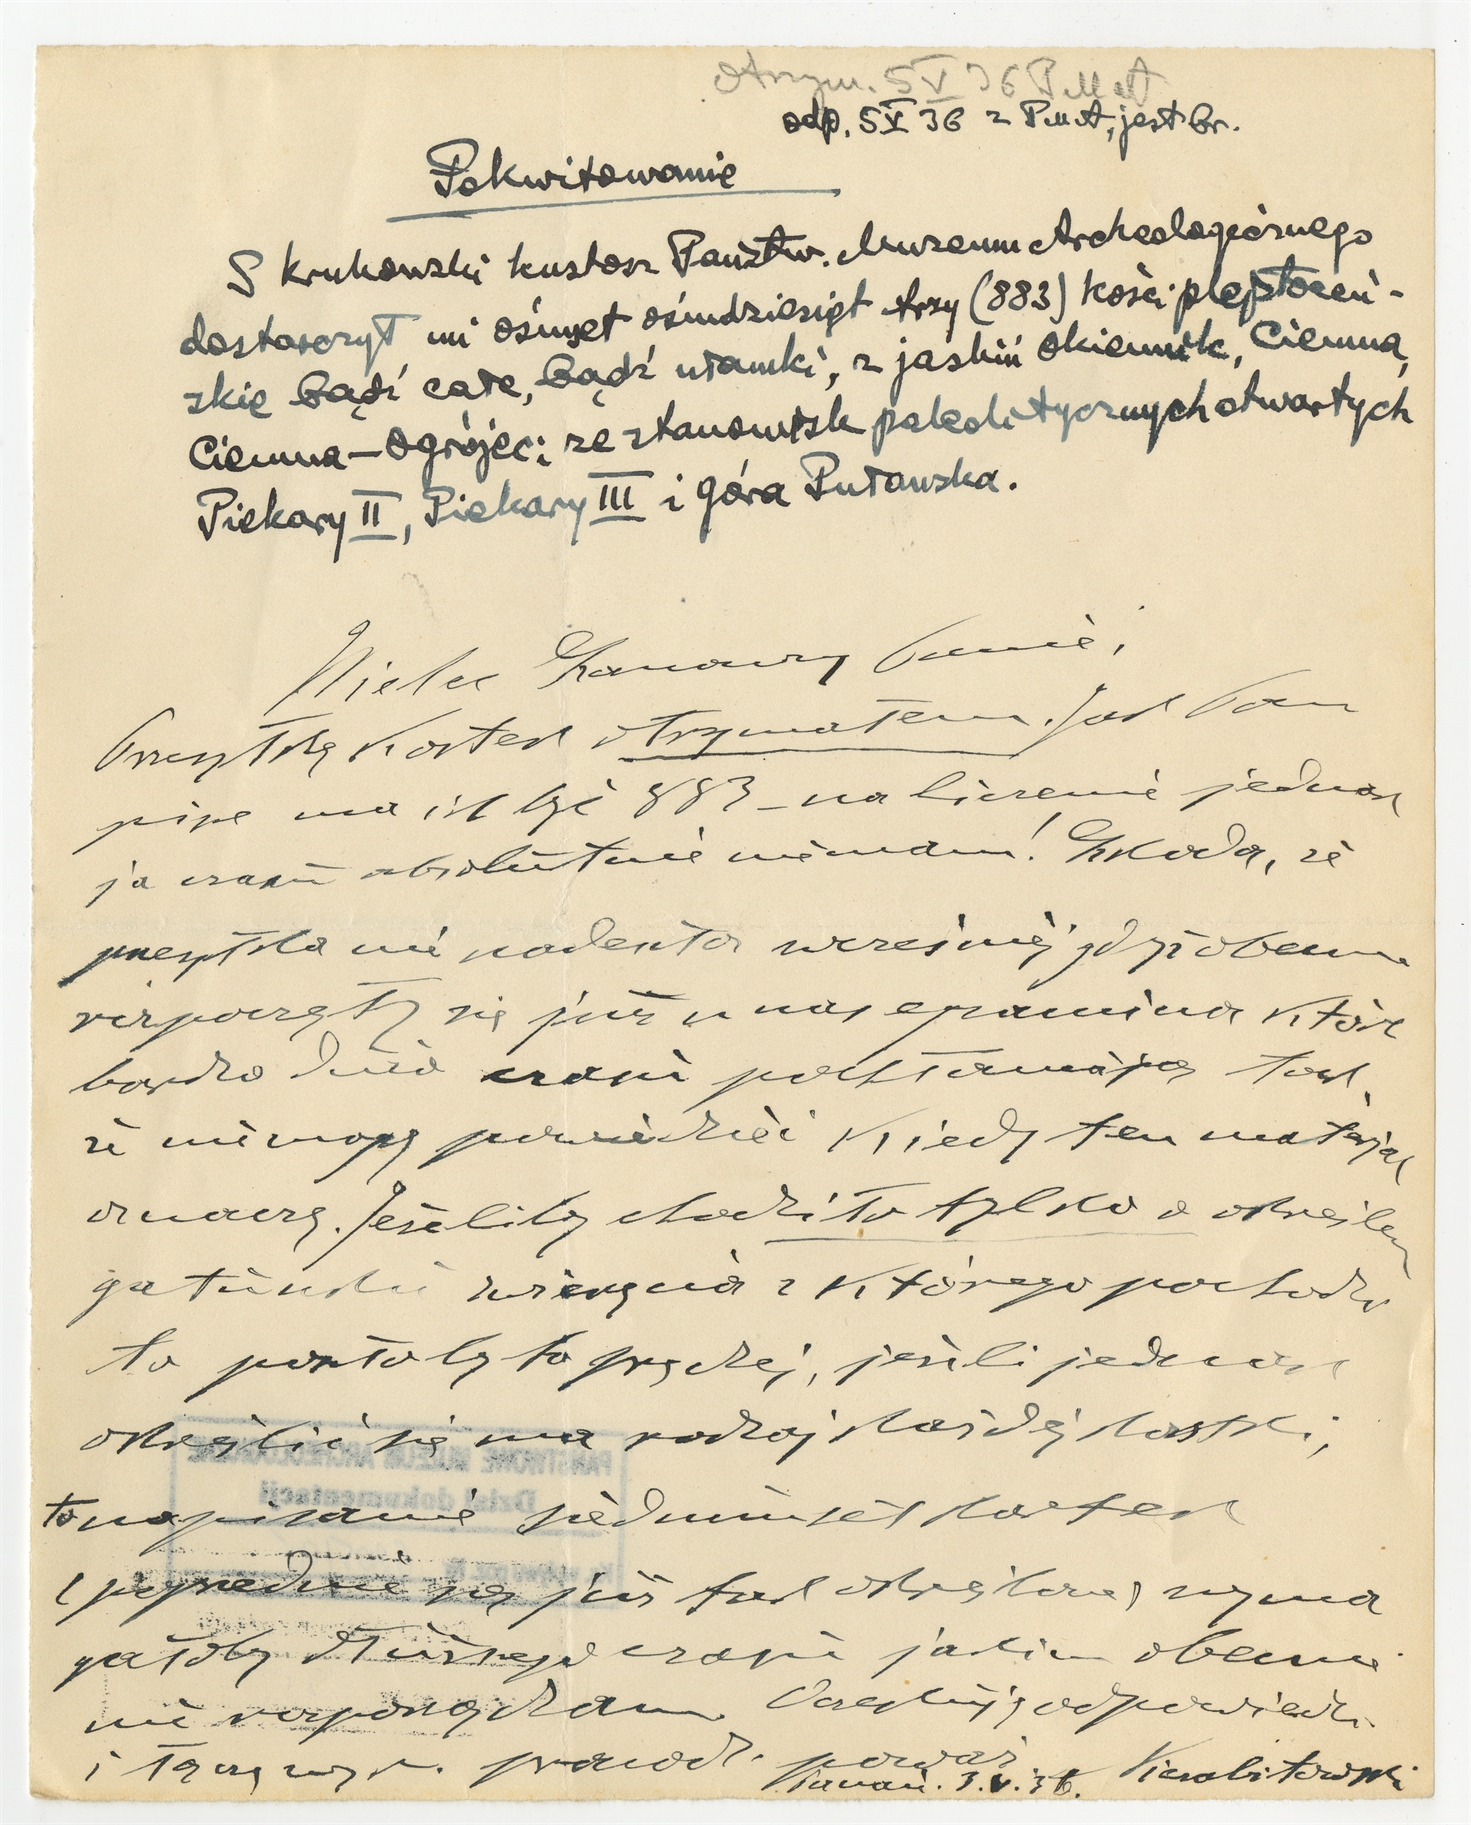 Otrzym. 5 V 36 PMA
odp. 5 V 36 z PMA, jest br.
Pokwitowanie
S Krukowski kustosz Państw. Muzeum Archeologicznego
dostarczył mi ośmset ośmdziesiąt trzy (883) kości plejstoceń-
skie bądź całe, bądź ułamki, z jaskiń Okiennik, Ciemna,
Ciemna-Ogrójec i ze stanowisk paleolitycznych otwartych
Piekary II, Piekary III i Góra Puławska.
Wielce Szanowny Panie!
Przesyłkę kostek otrzymałem. Jak Pan
pisze ma ich być 883 - na liczenie jednak
ja czasu absolutnie nie mam! Szkoda, że
przesyłka nie nadeszła wcześniej gdyż obecnie
rozpoczęły się już u nas egzamina które
bardzo dużo czasu pochłaniają tak,
że nie mogę powiedzieć kiedy ten materjał
oznaczę. Jeżeliby chodziło tylko o określen
gatunku zwierzęcia z którego pochodzi
to poszłoby to prędzej, jeżeli jednak
określić się ma rodzaj każdej kostki,
to napisanie siedmiuset kartek
(poprzednie są już tak określone) wyma
gałoby dłuższego czasu jakim obecnie
nie rozporządzam. Oczekuję odpowiedzi
i łączę wyr. prawdz. poważ
Poznań. 3.V.36. Niezabitowski
PAŃSTWOWE MUZEUM ARCHEOLOGICZNE
Dział dokumentacji